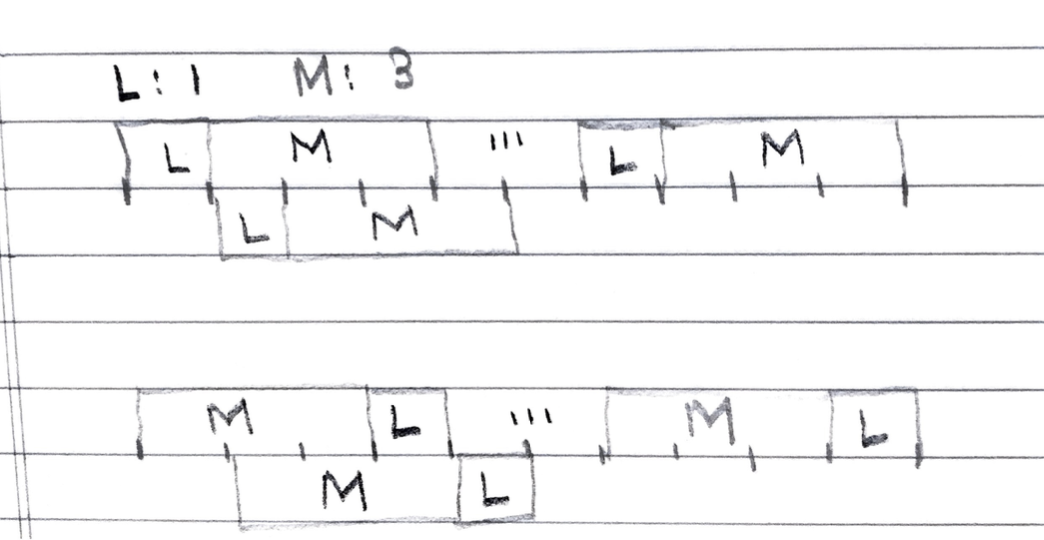 L: 1 M: 3
L M ''' L M
L M
M L ''' M L
M L